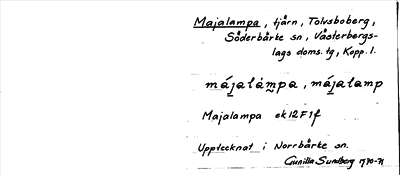 Majalampa, tjärn, Tolvsboberg,
Söderbärke sn, Västerbergs-
lags doms. tg, Kopp. l.
májalámpa, májalamp
Majalampa ek 12F1f
Upptecknat i Norrbärke sn.
Gunilla Sundberg 1970-71